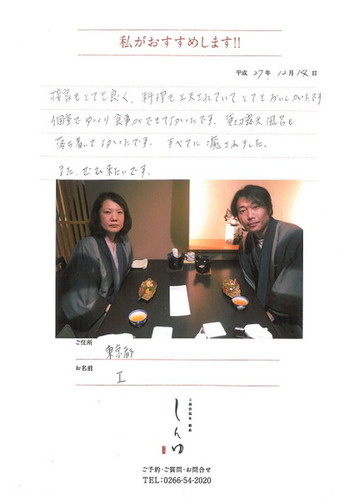 私がおすすめします!!
平成 27年 12月 14日
接客もとても良く、料理も工夫されていてとてもおいしかったです
個室でゆっくり食事ができてよかったです。貸切露天風呂も
落ち着いてよかったです。すべてに癒されました。
また、ぜひ来たいです。
ご住所
東京都
お名前
I
しんゆ
ご予約・ご質問・お問合せ
TEL:0266-54-2020